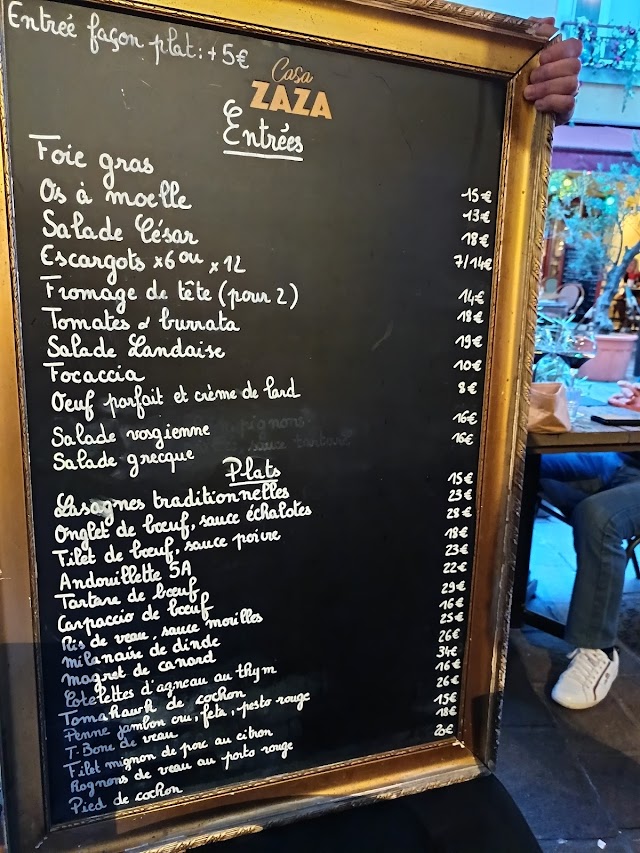 Entreé façon plat : + 5€
Casa
ZAZA
Entrées
Foie gras 15€
Os à moelle 13€
Salade César 18€
Escargots x6 ou x12 7/14€
Fromage de tête (pour 2) 14€
Tomates & burrata 18€
Salade Landaise 19€
Focaccia 10€
Oeuf parfait et crème de lard 8€
Salade vosgienne 16€
Salade grecque 16€
Plats
Lasagnes traditionnelles 15€
Onglet de bœuf, sauce échalotes 23€
Filet de bœuf, sauce poivre 28€
Andouillette 5A 18€
Tartare de bœuf 23€
Carpaccio de bœuf 22€
Ris de veau, sauce morilles 29€
milanaise de dinde 16€
magret de canard 25€
Cotelettes d'agneau au thym 26€
Tomahawk de cochon 34€
Penne jambon cru, feta, pesto rouge 16€
T.Bone de veau 26€
Filet mignon de porc au citron 15€
Rognons de veau au porto rouge 18€
Pied de cochon 20€